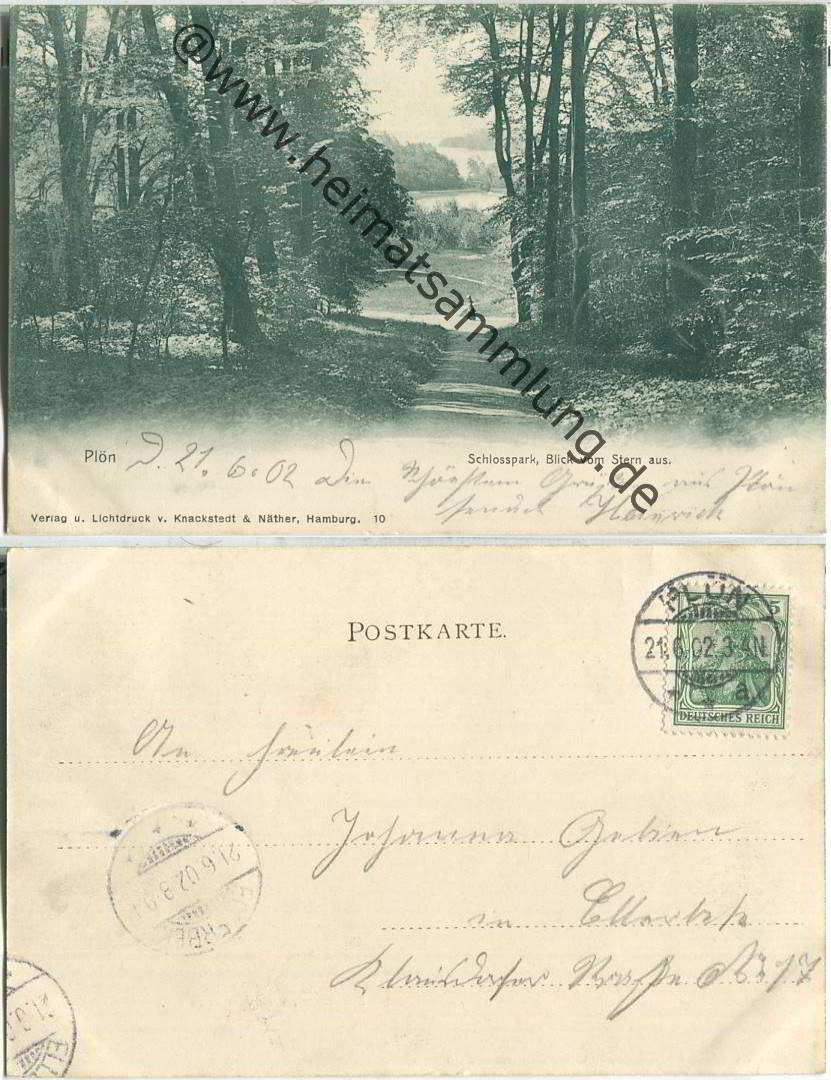 @www.heimatsammlung.de
Plön D. 21. 6. 02 Die Schönsten Grüße aus Plön
Schlosspark, Blick vom Stern aus.
sendet Heinrich
Verlag u. Lichtdruck v. Knackstedt & Näther, Hamburg. 10
POSTKARTE.
PLÖN
5
21.6.02.3-4N.
* * a
DEUTSCHES REICH
An Fräulein
Johanna
in Ellerbek
Straße No 17
21.6.02.8-9
ELLERBEK
21.
ELL